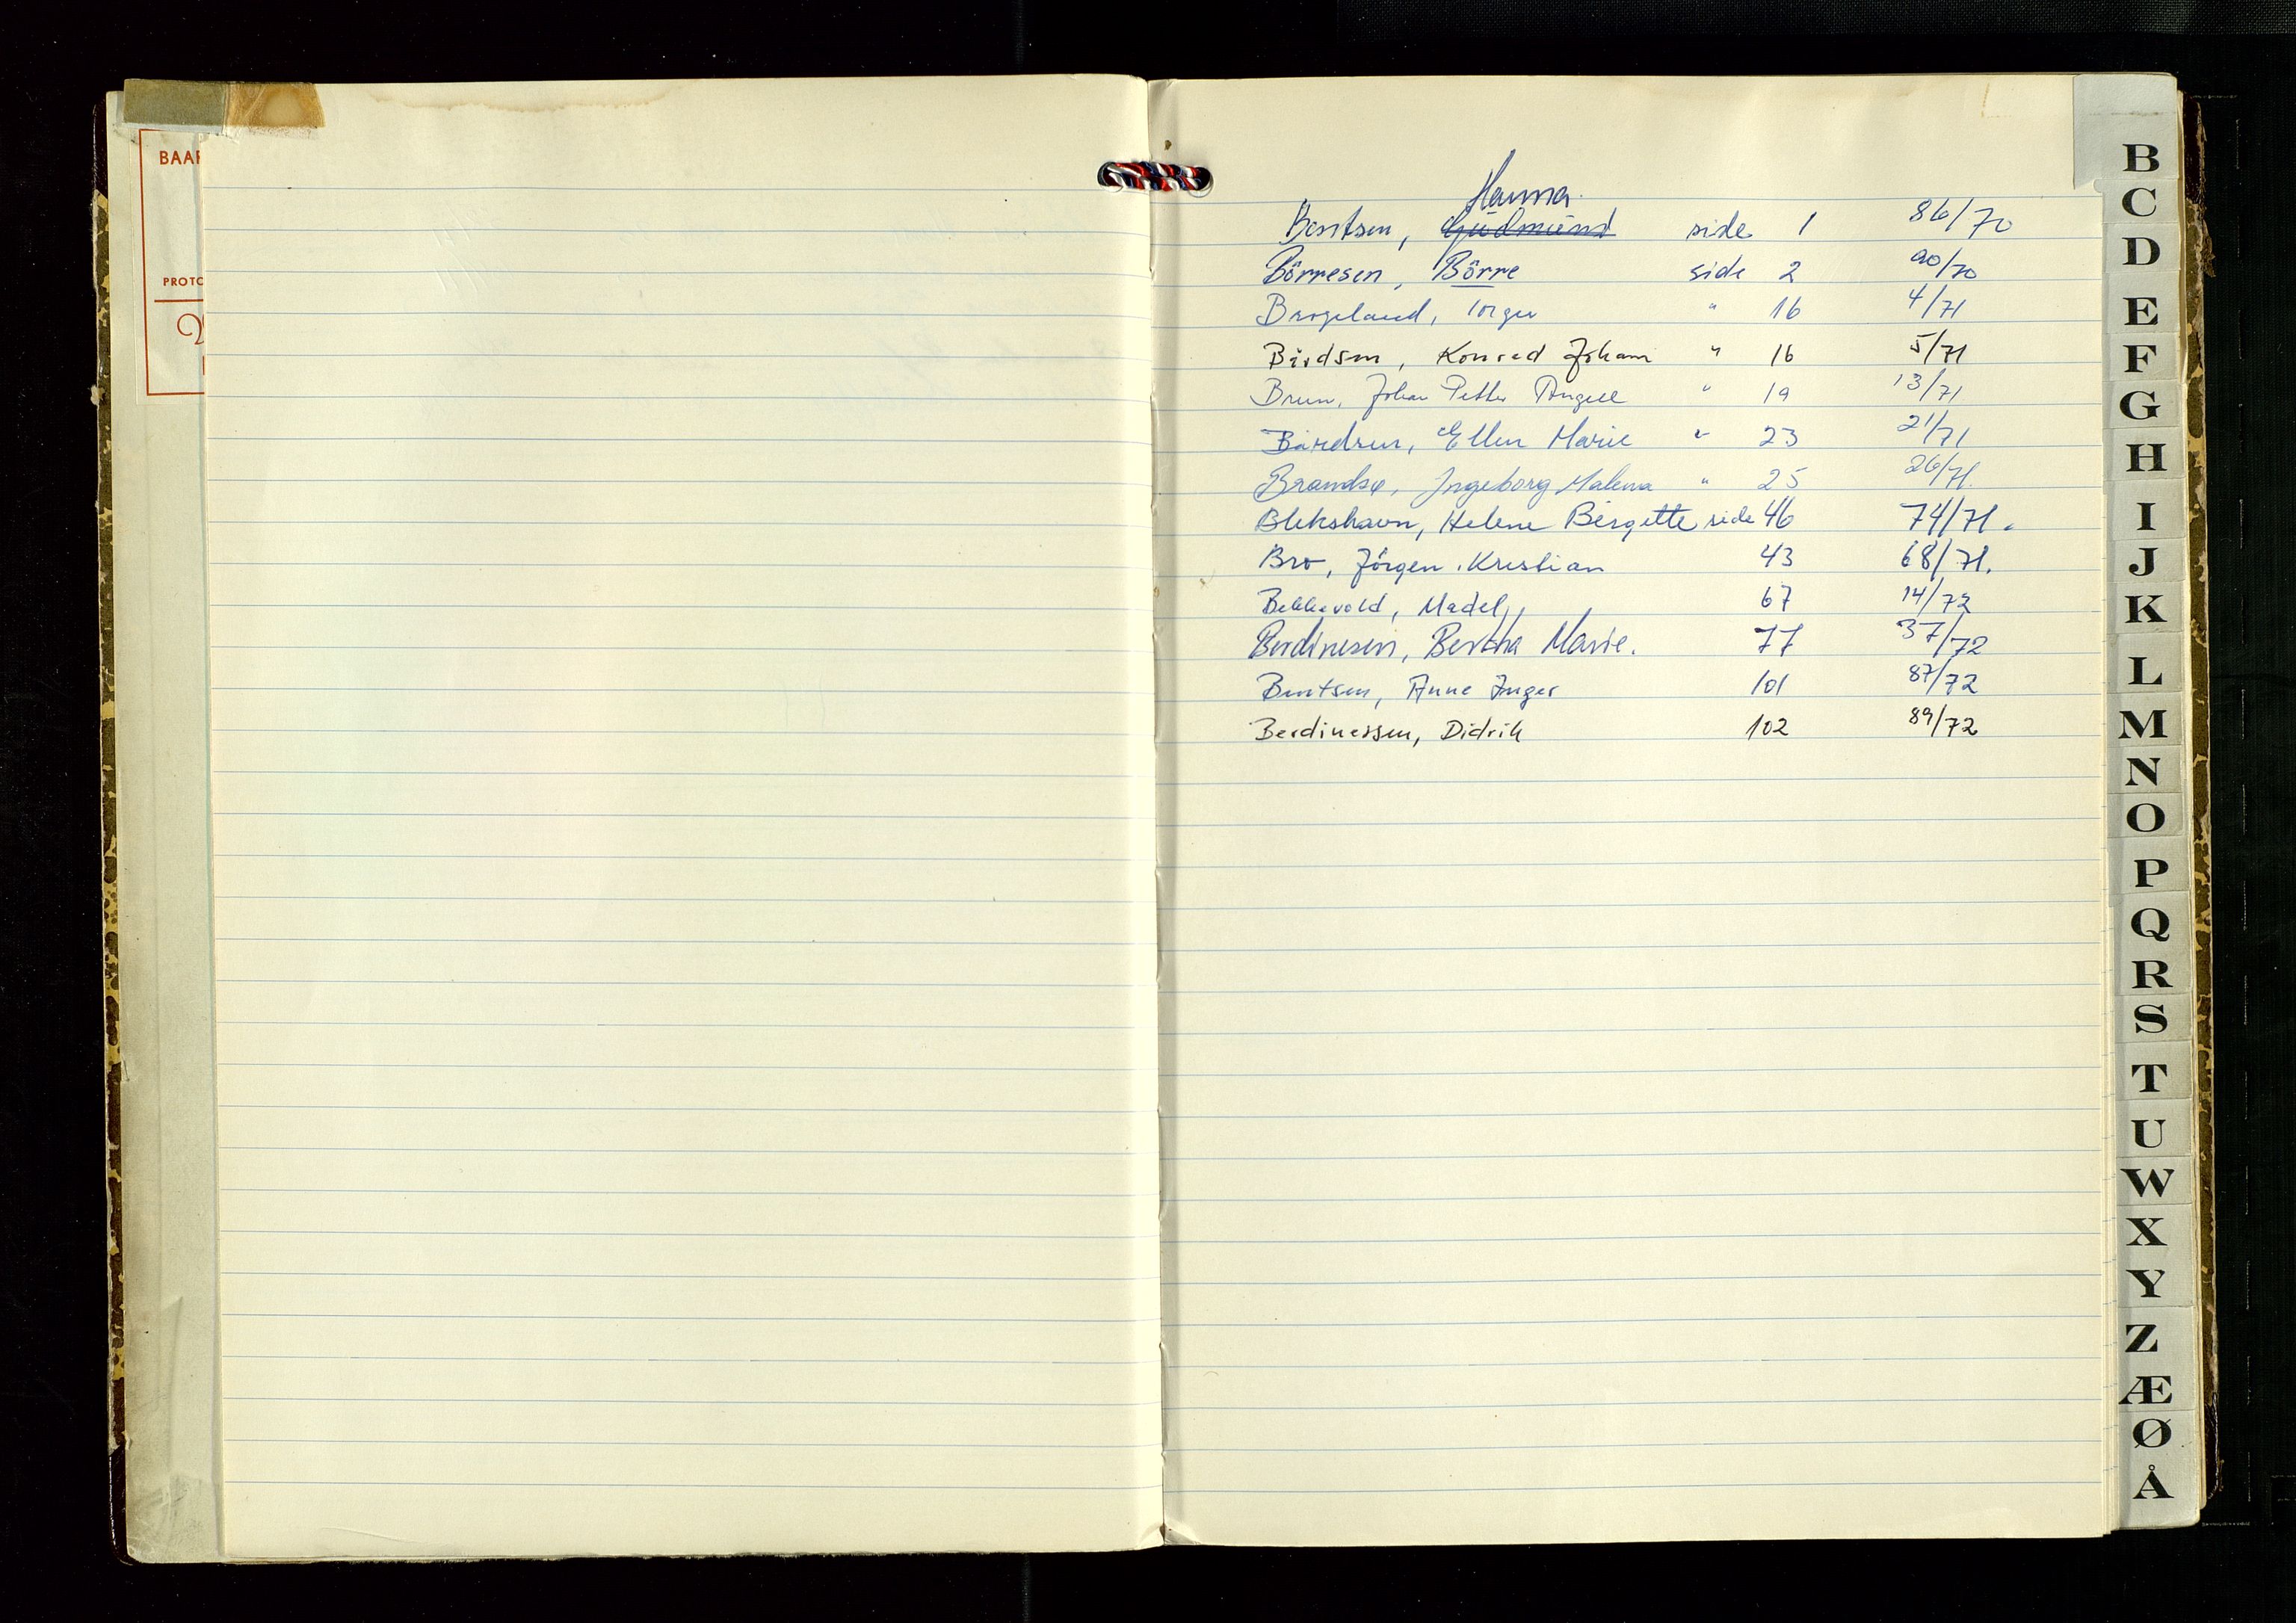 BAAR
PROTO
Hanna.
Berntsen, Gudmund side 1 86/70
Börresen, Börre side 2 90/70
Brogeland, Torger " 16 4/71
Bårdsen, Konrad Johan " 16 5/71
Brun, Johan Petter Angell " 19 13/71
Bårdsen, Ellen Marie " 23 21/71
Brandsø, Ingeborg Malena " 25 26/71.
Blekshavn, Helene Birgitte side 46 74/71.
Bro, Jörgen Kristian 43 68/71.
Bekkevold, Madely 67 14/72
Berdinesen, Bertha Marie. 77 37/72
Berntsen, Anne Inger 101 87/72
Berdinessen, Didrik 102 89/72
B
C
D
E
F
G
H
I
J
K
L
M
N
O
P
Q
R
S
T
U
W
X
Y
Z
Æ
Ø
Å